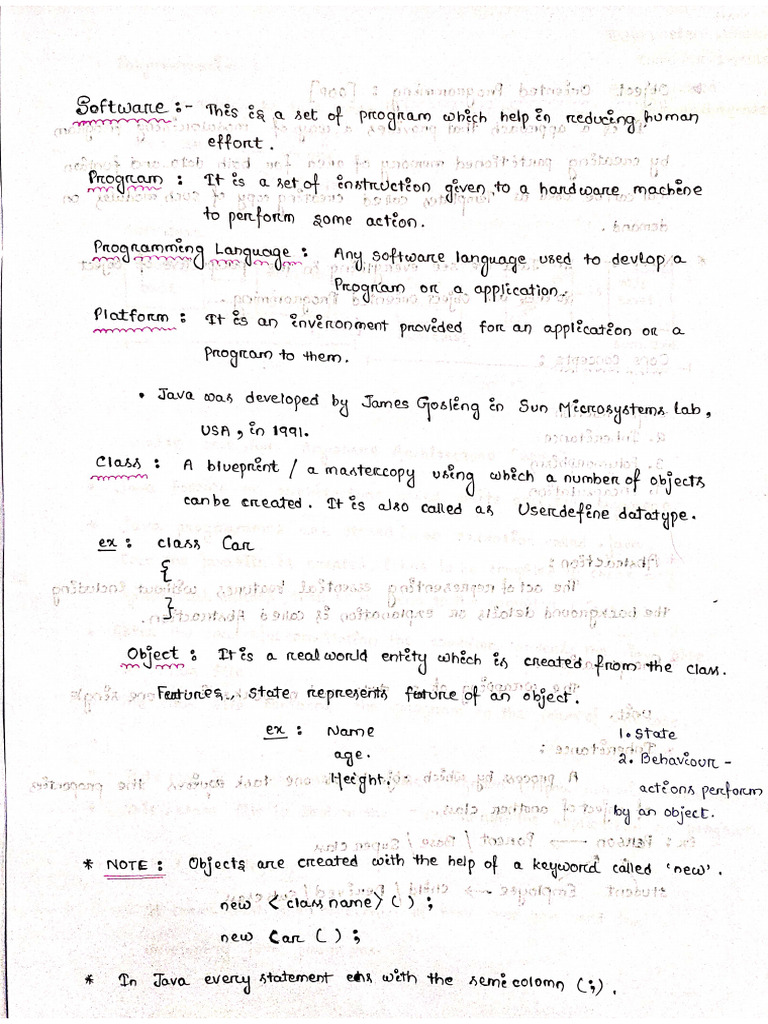 Software :- This is a set of program which help in reducing human
effort.
Program : It is a set of instruction given to a hardware machine
to perform some action.
Programming Language : Any software language used to devlop a
Program or a application.
Platform : It is an invironment provided for an application or a
Program to them.
• Java was developed by James Gosling in Sun Microsystems Lab,
USA, in 1991.
Class : A blueprint / a mastercopy using which a number of objects
canbe created. It is also called as Userdefine datatype.
ex : class Car
{
}
Object : It is a real world entity which is created from the class.
Features., state represents feature of an object.
ex : Name
age.
Height.
1. State
2. Behaviour -
actions perform
by an object.
* NOTE : Objects are created with the help of a keyword called 'new'.
new <class name> ( ) ;
new Car ( ) ;
* In Java every statement ens with the semi colomn (;).